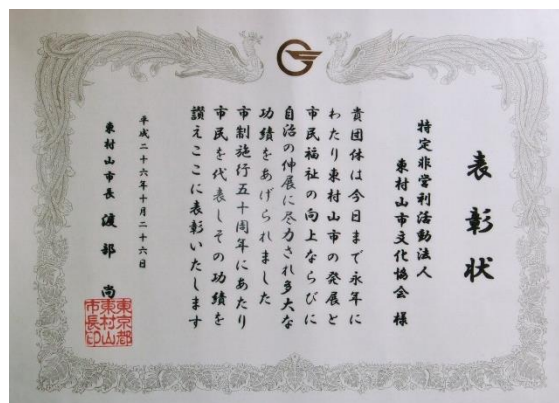 表彰状
特定非営利活動法人
東村山市文化協会 様
貴団体は今日まで永年に
わたり東村山市の発展と
市民福祉の向上ならびに
自治の伸展に尽力され多大な
功績をあげられました
市制施行五十周年にあたり
市民を代表しその功績を
讃えここに表彰いたします
平成二十六年十月二十六日
東村山市長 渡部 尚
東京都
東村山
市長印